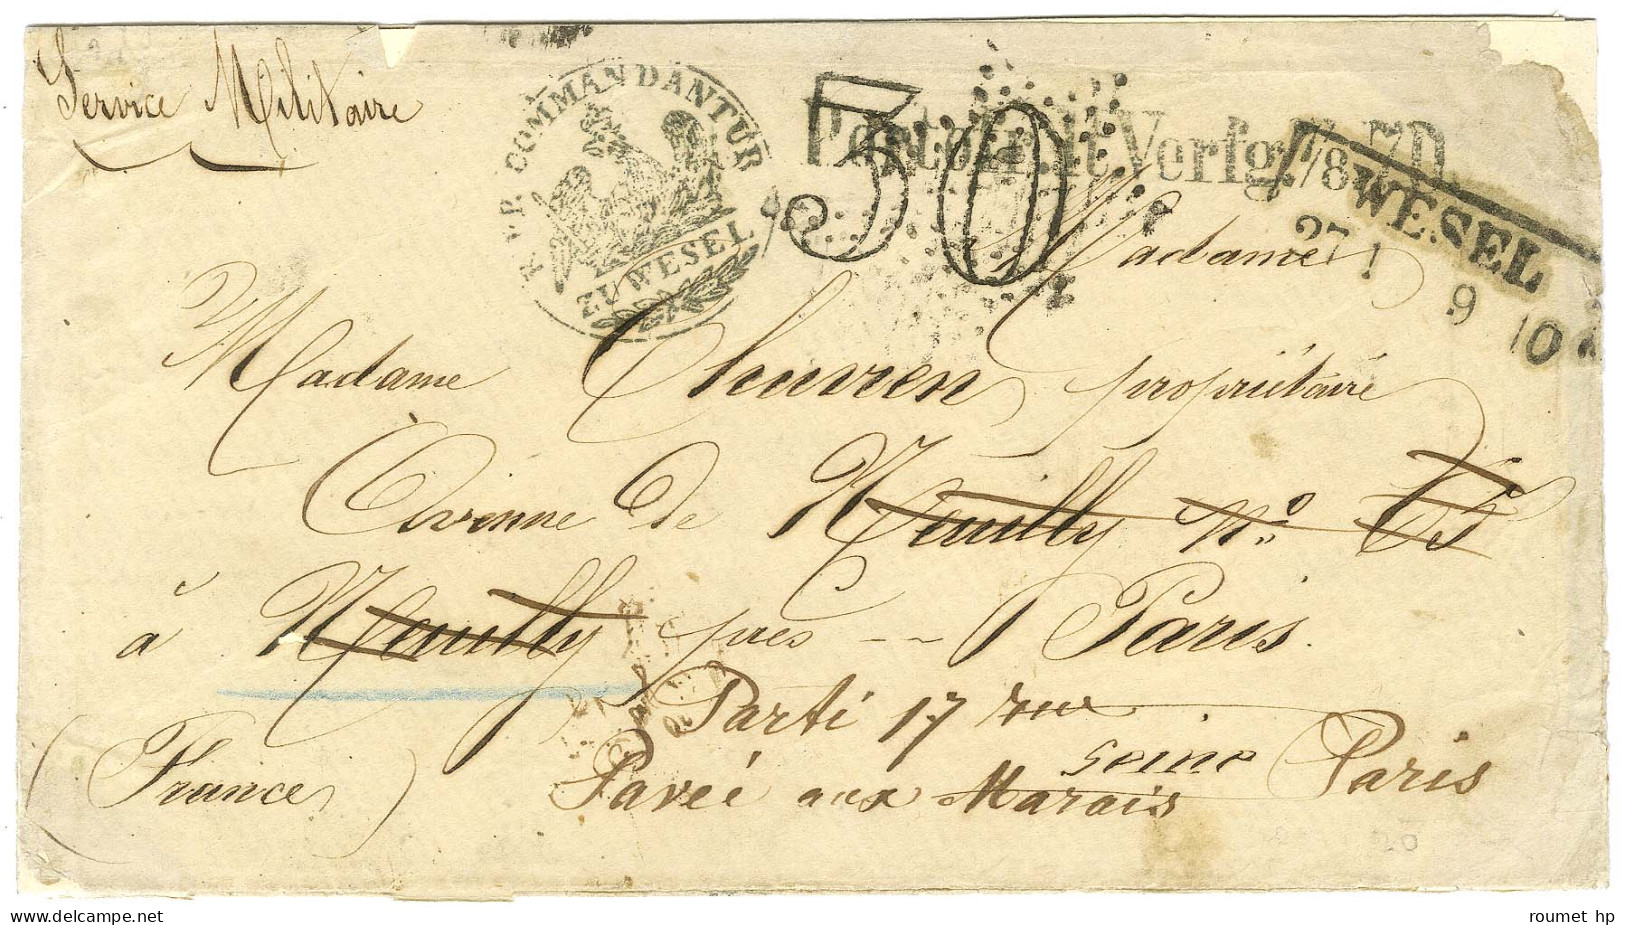 Service Militaire
K. PR. COMMANDANTUR
ZU WESEL
30
Portofr. lt. Verfg. 7/8. 70.
WESEL
27 1
9 10
Madame
Madame Chuvren propriétaire
Avenue de Neuilly No
à Neuilly près -- Paris.
Parti 17 rue
seine
(France) Pavée aux Marais Paris
roumet hp